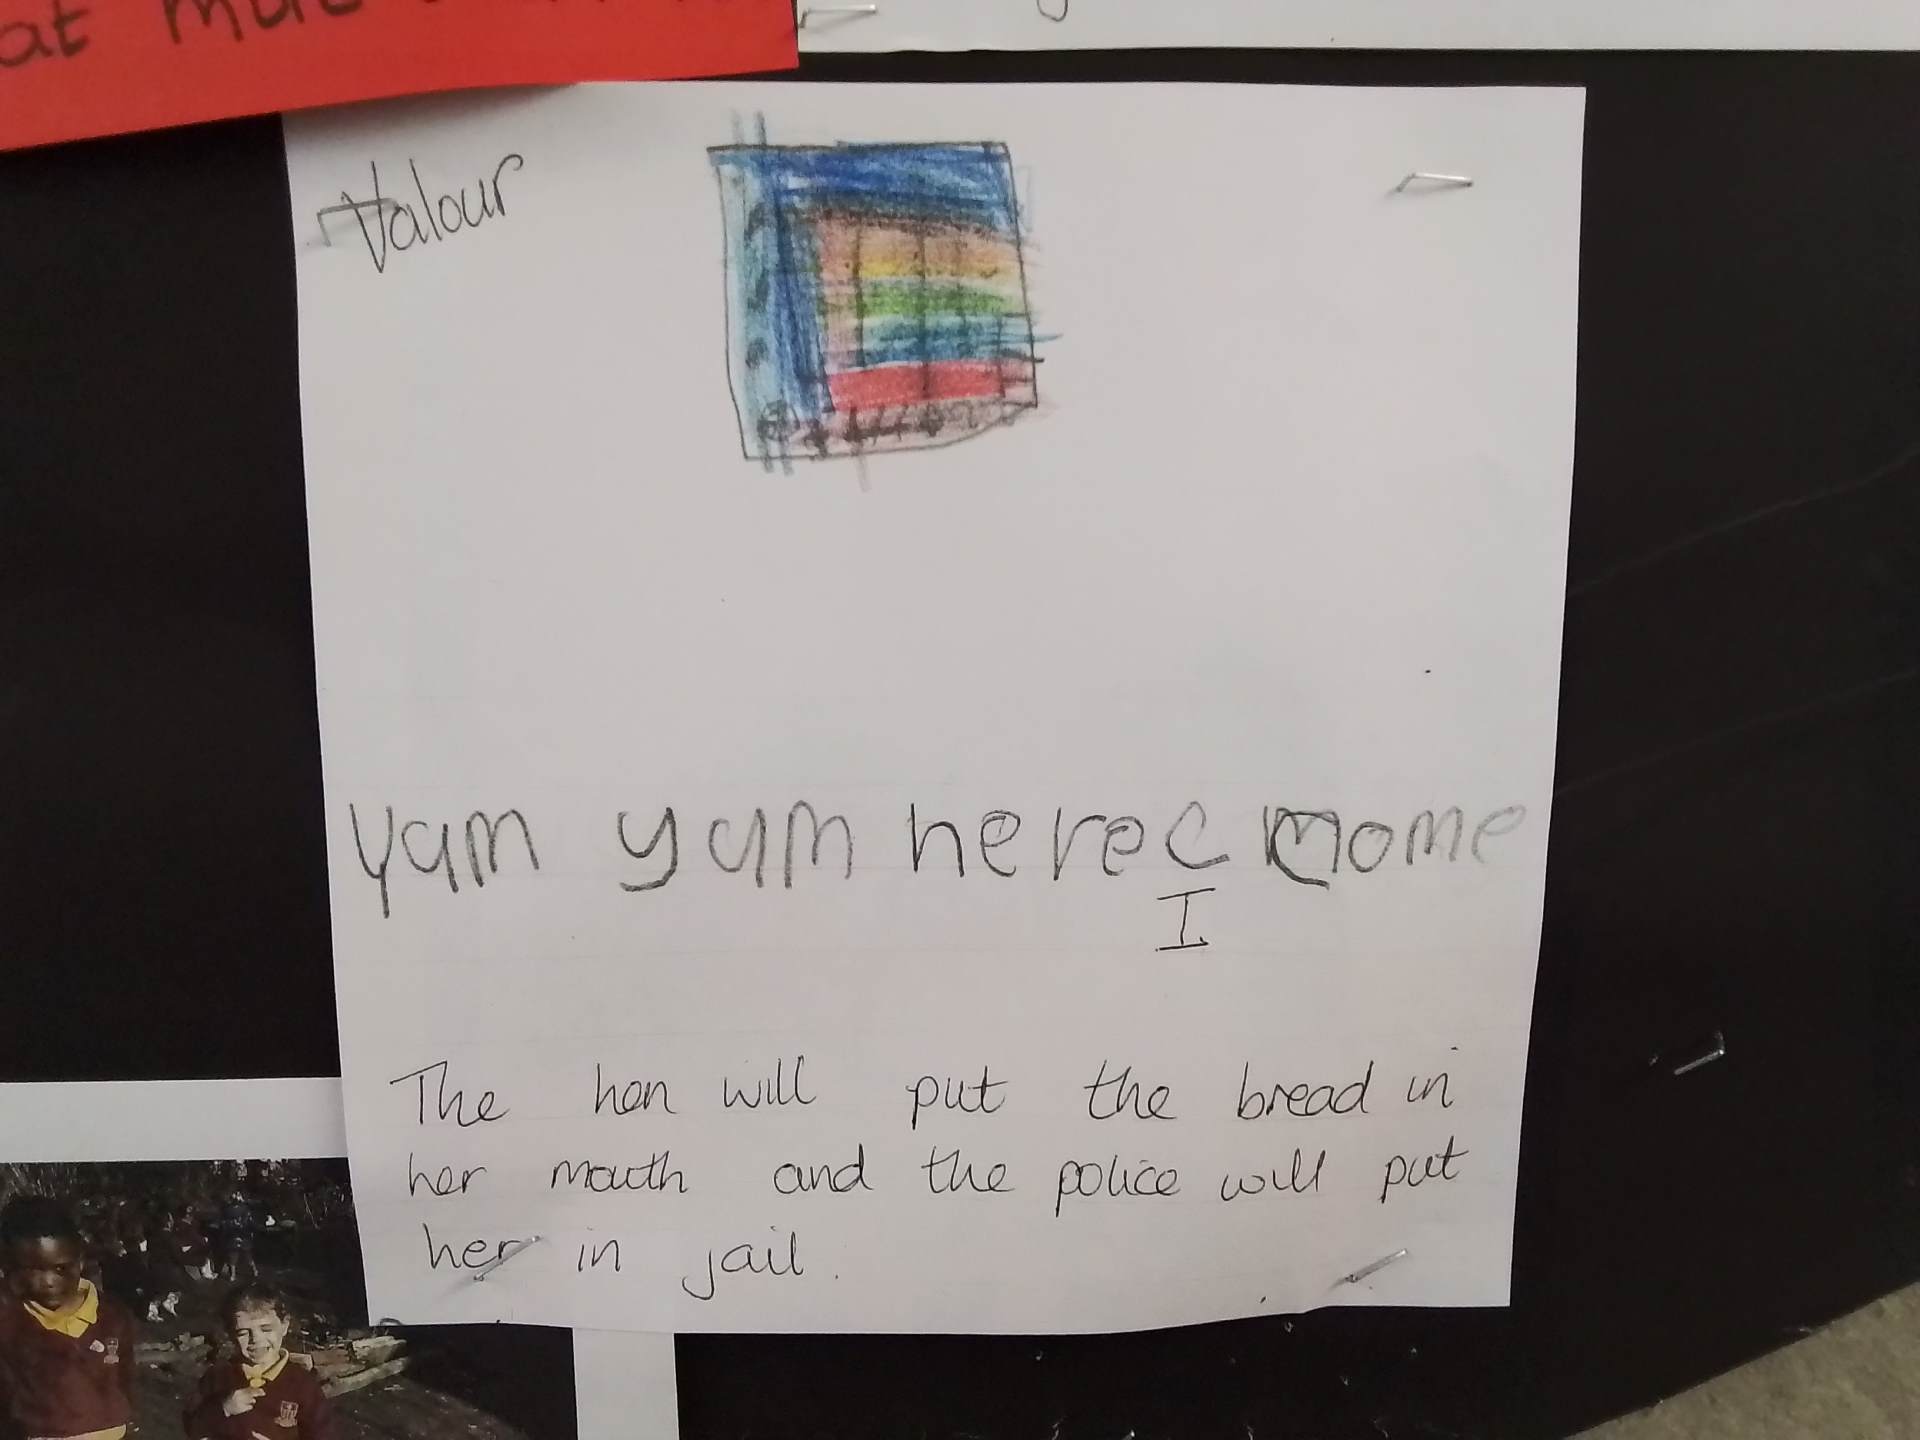 at
Valour
Yum yum here c mome
I
The hen will put the bread in
her mouth and the police will put
her in jail.